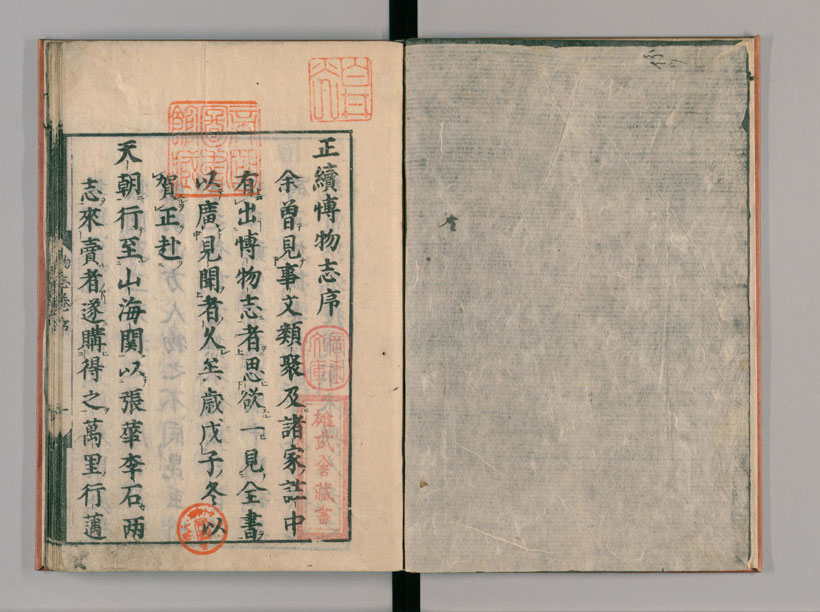 正續愽物志序
余曽見事文類聚及諸家註中
有出愽物志者思欲一見全書
以廣見聞者久矣歳戊子冬以
賀正赴
天朝行至山海関以張華李石兩
志來賣者遂購得之萬里行邁
雄武舎藏書